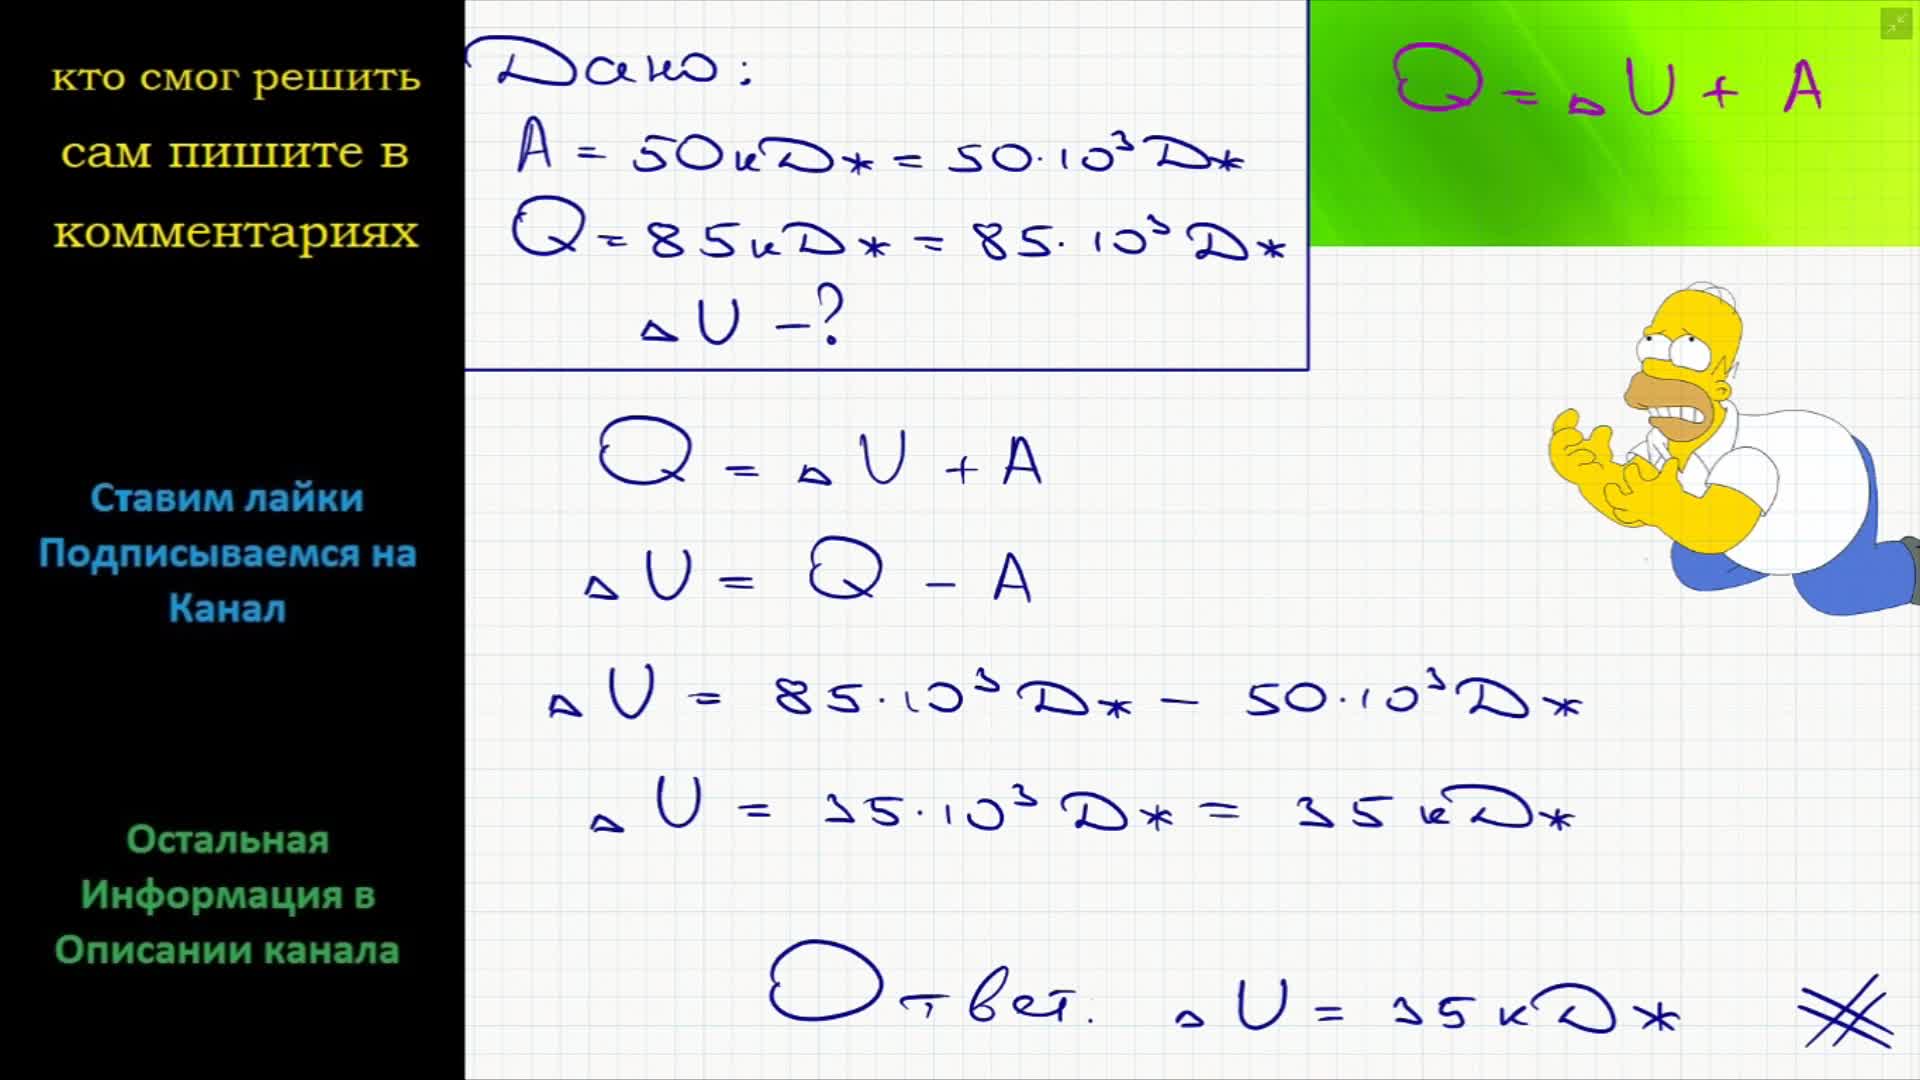 кто смог решить
сам пишите в
комментариях
Ставим лайки
Подписываемся на
Канал
Остальная
Информация в
Описании канала
Дано:
A = 50кДж = 50·10³Дж
Q = 85кДж = 85·10³Дж
ΔU -?
Q = ΔU + A
Q = ΔU + A
ΔU = Q - A
ΔU = 85·10³Дж - 50·10³Дж
ΔU = 35·10³Дж = 35кДж
Ответ: ΔU = 35кДж